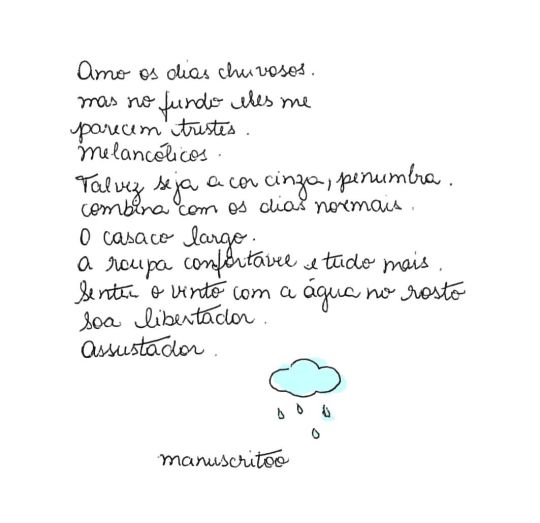 Amo os dias chuvosos.
mas no fundo eles me
parecem tristes.
melancólicos.
Talvez seja a cor cinza, penumbra.
combina com os dias normais.
O casaco largo.
a roupa confortável e tudo mais.
Sentir o vento com a água no rosto
soa libertador.
assustador.
manuscritoo